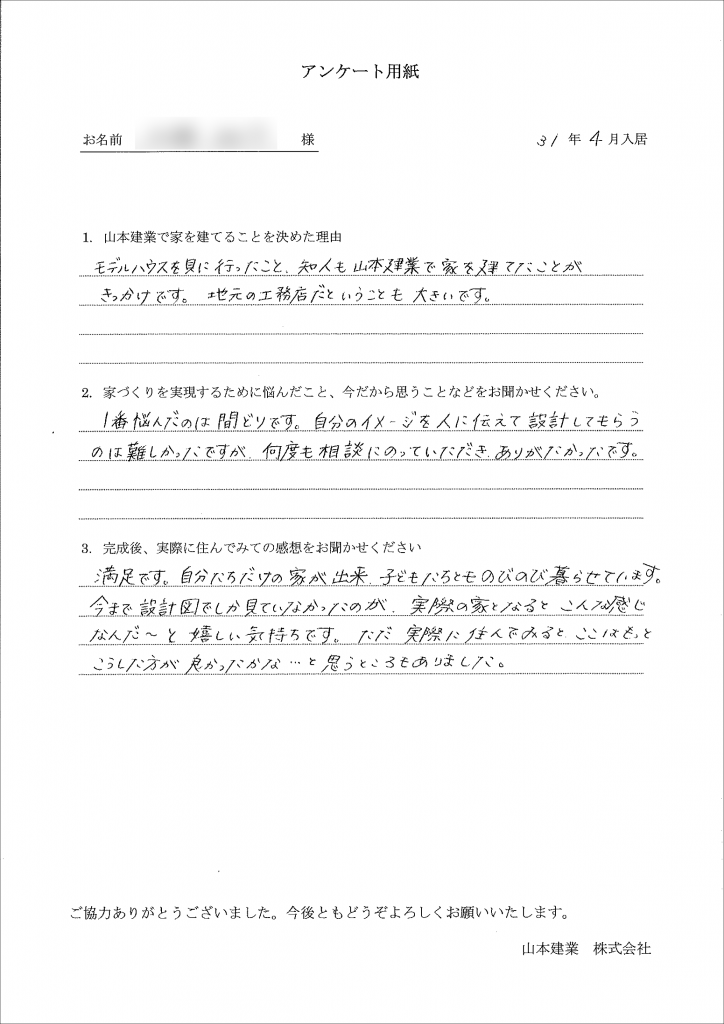 アンケート用紙
お名前 様
31 年 4 月入居
1. 山本建業で家を建てることを決めた理由
モデルハウスを見に行ったこと、知人も山本建業で家を建てたことが
きっかけです。地元の工務店だということも大きいです。
2. 家づくりを実現するために悩んだこと、今だから思うことなどをお聞かせください。
1番悩んだのは間どりです。自分のイメージを人に伝えて設計してもらう
のは難しかったですが、何度も相談にのっていただき、ありがたかったです。
3. 完成後、実際に住んでみての感想をお聞かせください
満足です。自分たちだけの家が出来、子どもたちとものびのび暮らせています。
今まで設計図でしか見ていなかったのが、実際の家となるとこんな感じ
なんだ〜と嬉しい気持ちです。ただ実際に住んでみるとここはもっと
こうした方が良かったかな…と思うところもありました。
ご協力ありがとうございました。今後ともどうぞよろしくお願いいたします。
山本建業 株式会社